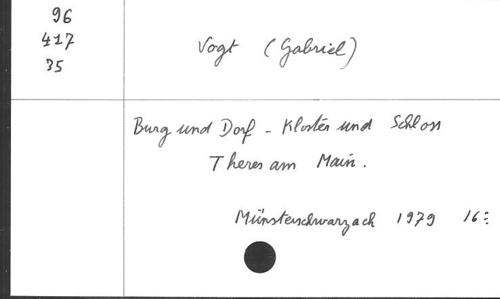 96
417
35
Vogt (Gabriel)
Burg und Dorf - Kloster und Schloss
Theres am Main.
Münsterschwarzach 1979 16: